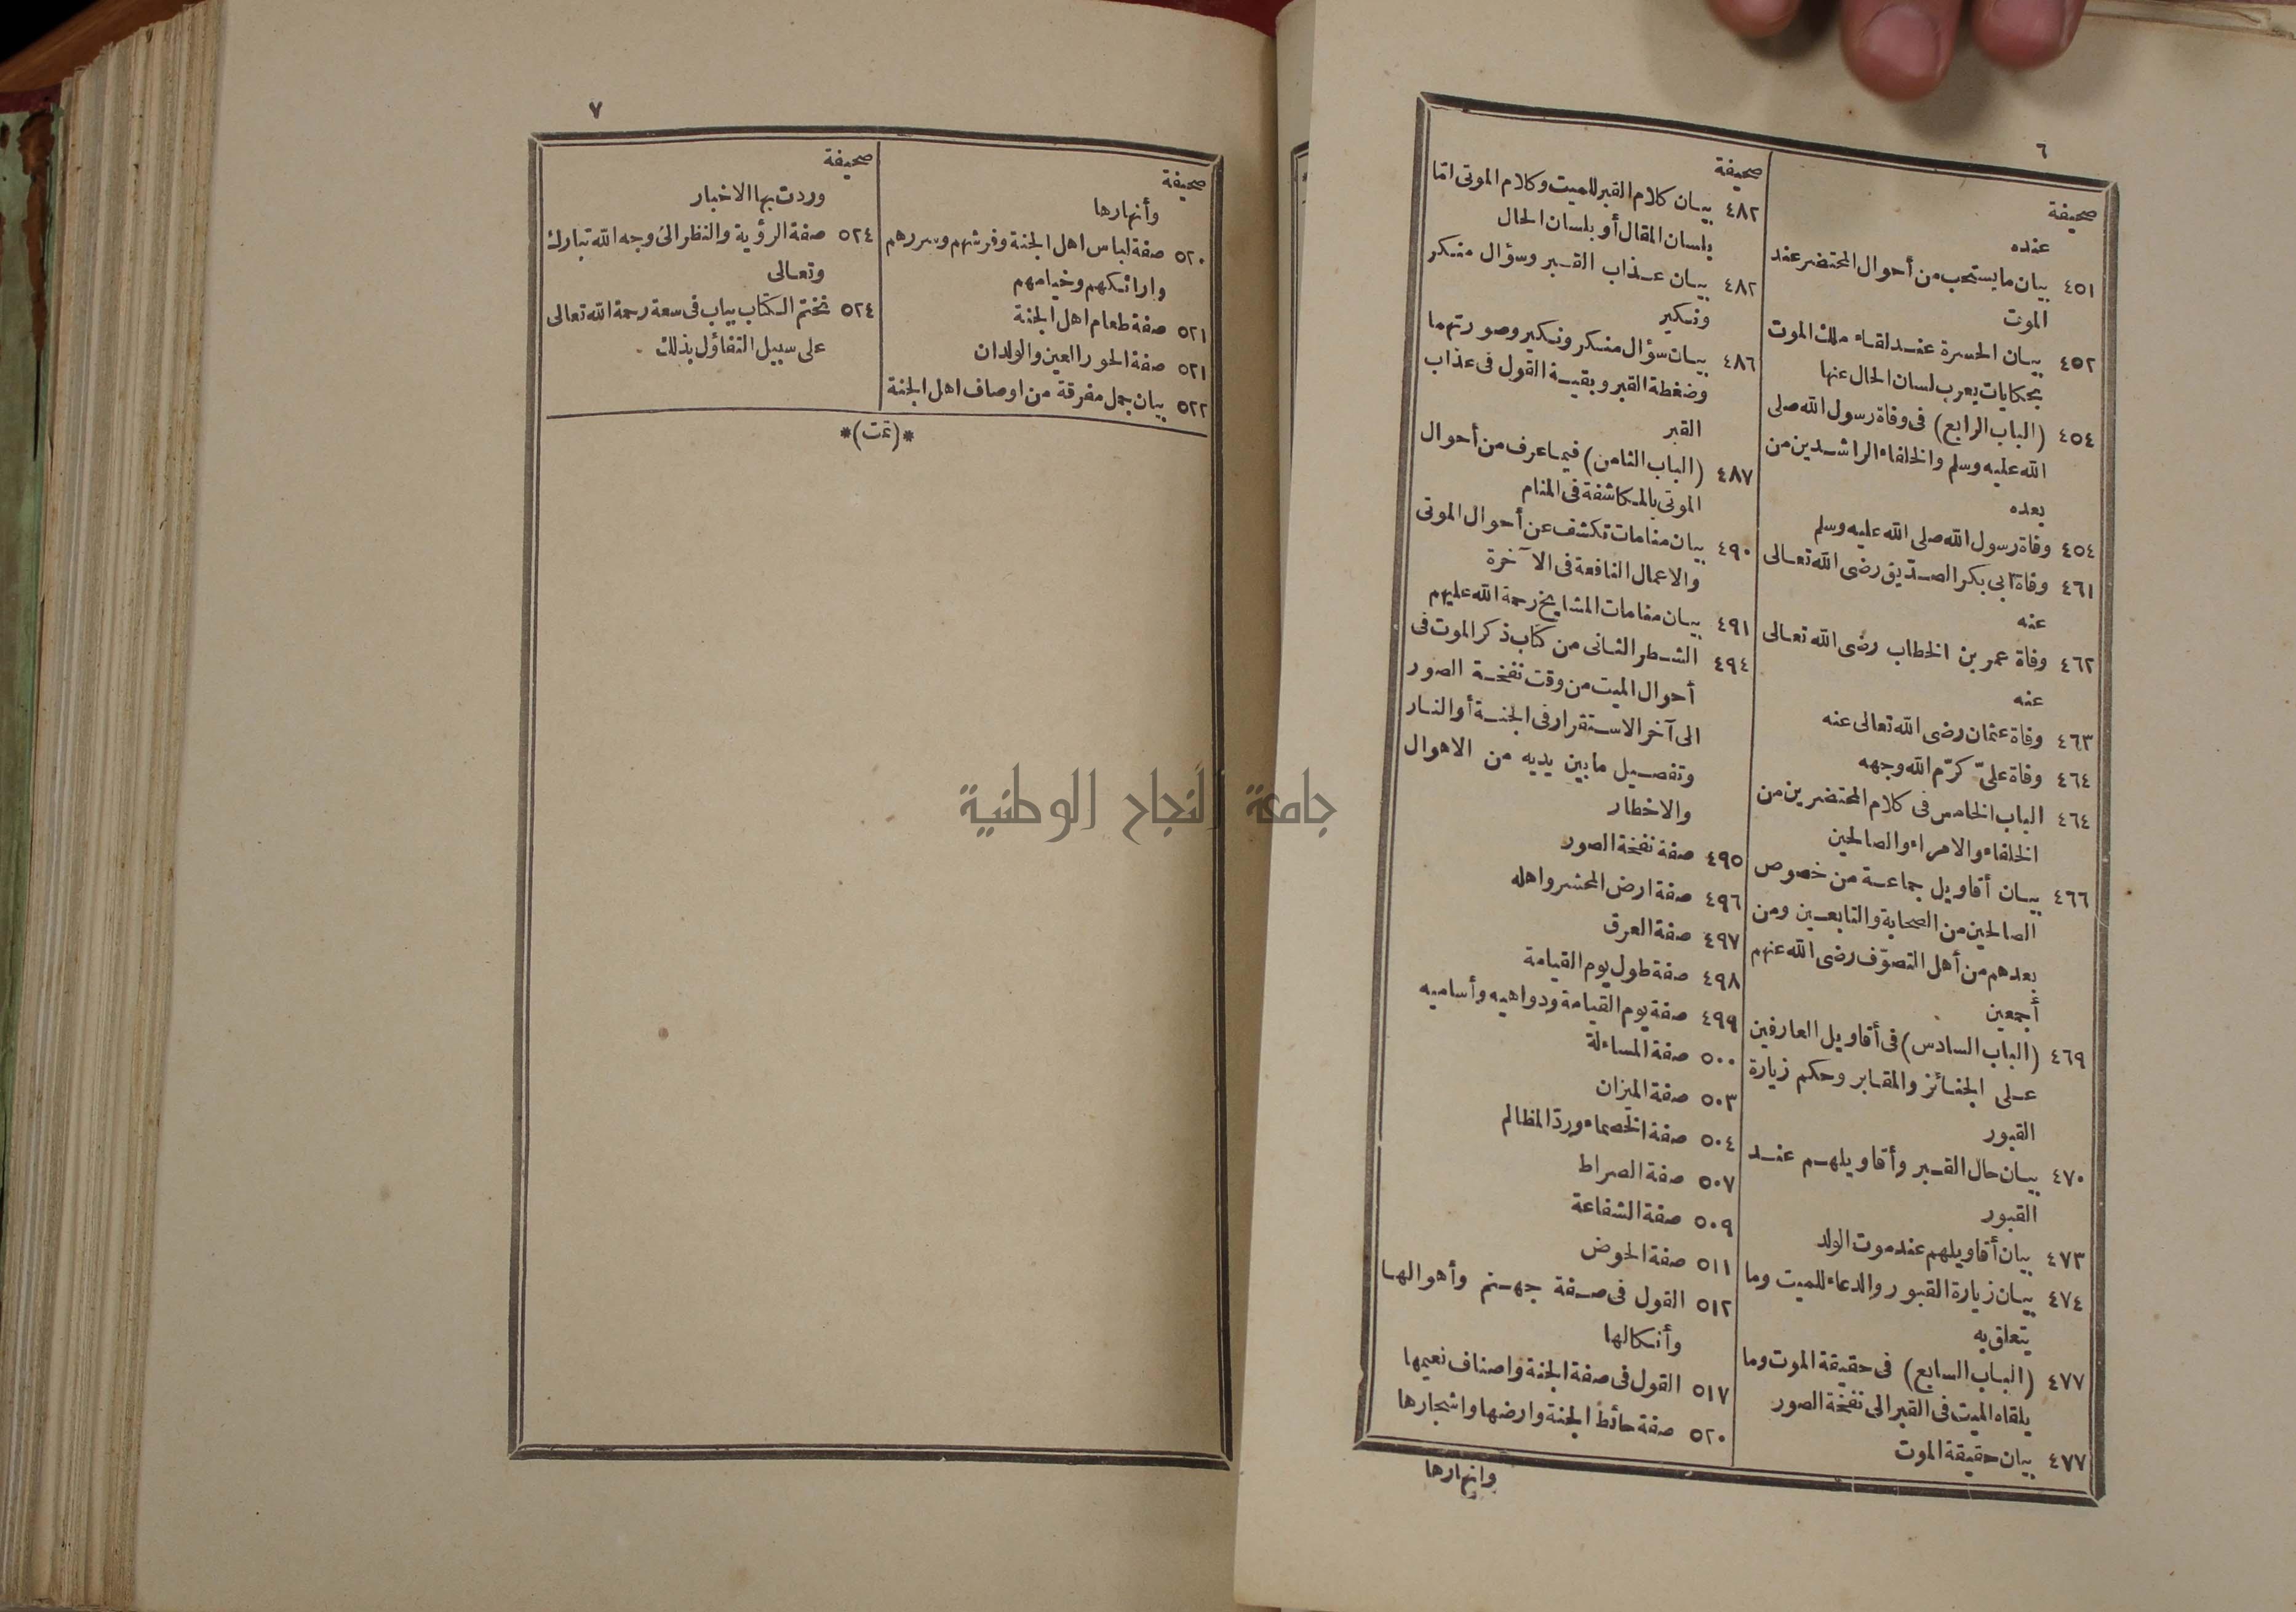 ٦
صحيفة
عنده
٤٥١ بيان ما يستحب من أحوال المحتضر عند
الموت
٤٥٢ بيان الحسرة عند لقاء ملك الموت
بحكايات يعرب لسان الحال عنها
٤٥٤ (الباب الرابع) فى وفاة رسول الله صلى
الله عليه وسلم والخلفاء الراشدين من
بعده
٤٥٤ وفاة رسول الله صلى الله عليه وسلم
٤٦١ وفاة أبى بكر الصدّيق رضى الله تعالى
عنه
٤٦٢ وفاة عمر بن الخطاب رضى الله تعالى
عنه
٤٦٣ وفاة عثمان رضى الله تعالى عنه
٤٦٤ وفاة علىّ كرّم الله وجهه
٤٦٤ الباب الخامس فى كلام المحتضرين من
الخلفاء والامراء والصالحين
٤٦٦ بيان أقاويل جماعة من خصوص
الصالحين من الصحابة والتابعين ومن
بعدهم من أهل التصوّف رضى الله عنهم
أجمعين
٤٦٩ (الباب السادس) فى أقاويل العارفين
على الجنائز والمقابر وحكم زيارة
القبور
٤٧٠ بيان حال القبر وأقاويلهم عند
القبور
٤٧٣ بيان أقاويلهم عند موت الولد
٤٧٤ بيان زيارة القبور والدعاء للميت وما
يتعلق به
٤٧٧ (الباب السابع) فى حقيقة الموت وما
يلقاه الميت فى القبر الى نفخة الصور
٤٧٧ بيان حقيقة الموت
صحيفة
٤٨٢ بيان كلام القبر للميت وكلام الموتى امّا
بلسان المقال أو بلسان الحال
٤٨٢ بيان عذاب القبر وسؤال منكر
ونكير
٤٨٦ بيان سؤال منكر ونكير وصورتهما
وضغطة القبر وبقية القول فى عذاب
القبر
٤٨٧ (الباب الثامن) فيما عرف من أحوال
الموتى بالمكاشفة فى المنام
٤٩٠ بيان منامات تكشف عن أحوال الموتى
والاعمال النافعة فى الآخرة
٤٩١ بيان منامات المشايخ رحمة الله عليهم
٤٩٤ الشطر الثانى من كتاب ذكر الموت فى
أحوال الميت من وقت نفخة الصور
الى آخر الاستقرار فى الجنة أو النار
وتفصيل ما بين يديه من الاهوال
والاخطار
٤٩٥ صفة نفخة الصور
٤٩٦ صفة ارض المحشر واهله
٤٩٧ صفة العرق
٤٩٨ صفة طول يوم القيامة
٤٩٩ صفة يوم القيامة ودواهيه وأساميه
٥٠٠ صفة المساءلة
٥٠٣ صفة الميزان
٥٠٤ صفة الخصماء وردّ المظالم
٥٠٧ صفة الصراط
٥٠٩ صفة الشفاعة
٥١١ صفة الحوض
٥١٢ القول فى صفة جهنم وأهوالها
وأنكالها
٥١٧ القول فى صفة الجنة واصناف نعيمها
٥٢٠ صفة حائط الجنة وارضها واشجارها
وانهارها
٧
صحيفة
وأنهارها
٥٢٠ صفة لباس اهل الجنة وفرشهم وسررهم
وارائكهم وخيامهم
٥٢١ صفة طعام اهل الجنة
٥٢١ صفة الحور العين والولدان
٥٢٢ بيان جمل مفرقة من اوصاف اهل الجنة
صحيفة
وردت بها الاخبار
٥٢٤ صفة الرؤية والنظر الى وجه الله تبارك
وتعالى
٥٢٤ نختم الكتاب بباب فى سعة رحمة الله تعالى
على سبيل التفاؤل بذلك
*(تمت)*
جامعة النجاح الوطنية